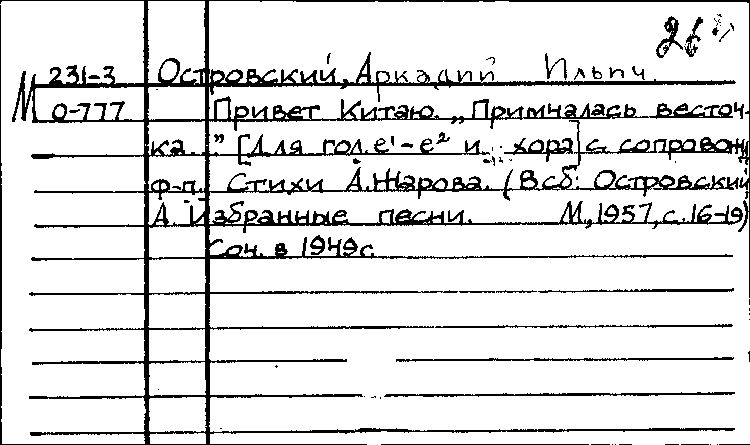 26
231-3 Островский, Аркадий Ильич.
М 0-777 Привет Китаю. „Примчалась весточ-
ка...” [Для гол. e¹-e² и хора] с сопровожд
ф-п. Стихи А. Жарова. (В сб: Островский
А. Избранные песни. М., 1957, с. 16-19)
Соч. в 1949г.